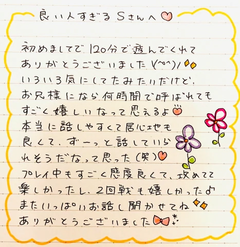 良い人すぎるSさんへ♡
初めましてで120分で遊んでくれて
ありがとうございました\(^^)/
いろいろ気にしてたみたいだけど、
お兄様になら何時間で呼ばれても
すごく嬉しいなって思えるよ
本当に話しやすくて居心地も
良くて、ずーっと話してていら
れそうだなって思った(笑)♡
プレイ中もすごく感度良くて、攻めてて
楽しかったし、2回戦も嬉しかった♪
またいっぱいお話し聞かせてね
ありがとうございました